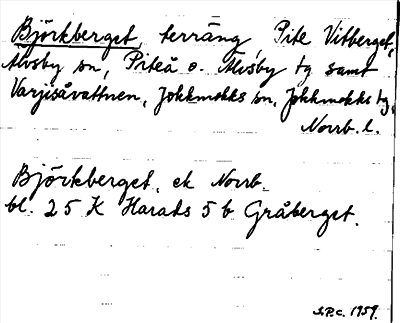 Björkberget, terräng, Pite Vitberget,
Älvsby sn, Piteå o. Älvsby tg samt
Varjisåvattnen, Jokkmokks sn, Jokkmokks tg,
Norrb. l.
Björkberget, ek Norrb.
bl. 25 K Harads 5 b Gråberget.
S.P.C. 1959.